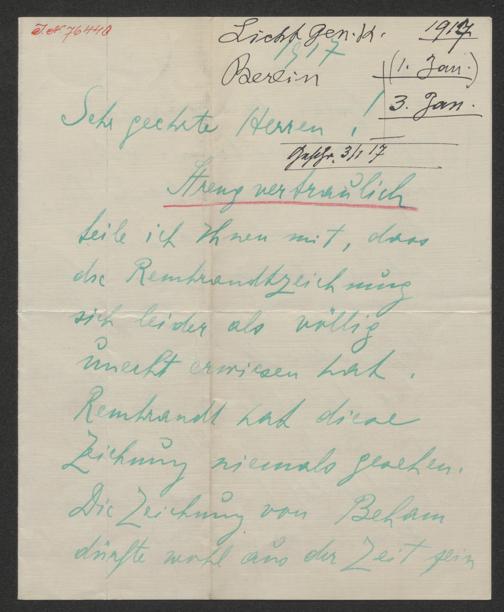 J.N. 76440
Licht Gen. K. 1917
1917
Berlin (1. Jan.)
3. Jan.
Sehr geehrte Herren!
3/1 17
Streng vertraulich
teile ich Ihnen mit, dass
die Rembrandtzeichnung
sich leider als völlig
unecht erwiesen hat.
Rembrandt hat diese
Zeichnung niemals gesehen.
Die Zeichnung von Beham
dürfte wohl aus der Zeit sein